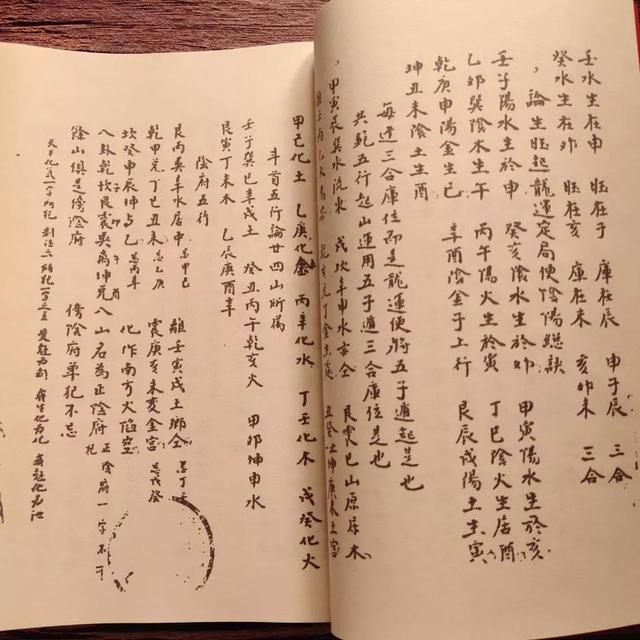 壬水生在申 旺在子 庫在辰 申子辰 三合
癸水生在卯 旺在亥 庫在未 亥卯未 三合
論生旺起龍運定局便陰陽總訣
壬子陽水生於申 癸亥陰水生於卯 甲寅陽水生於亥
乙卯巽陰木生午 丙午陽火生於寅 丁巳陰火生居酉
乾庚申陽金生巳 辛酉陰金子上行 艮辰戌陽土生寅
坤丑未陰土生酉
每逆三合庫位即是龍運便將五子遁起是也
共範五行起山運用五子遁三合庫位是也
甲寅辰巽水流火 戊坎辛申水亦全 艮震巳山原屬木
離壬丙乙火為 乾亥兌丁金生處 丑癸坤庚未土宮
甲己化土 乙庚化金 丙辛化水 丁壬化木 戊癸化火
斗首五行論廿四山所屬
壬子巽巳辛戌土 癸丑丙午乾亥火 甲卯坤申水
艮寅丁未木 乙辰庚酉辛
陰府五行
艮丙巽辛水居中 忌甲己 離壬寅戌土瑯全 忌丁壬
乾甲兌丁巳丑木 忌乙庚 震庚亥未変金宮 忌戊癸
坎癸申辰坤与乙 忌丙辛 化作南方火陷空
八卦乾坎艮震巽离坤兌 八山名為正陰府 正陰府一字不可犯
餘山俱是傍陰府 傍陰府单犯不忌